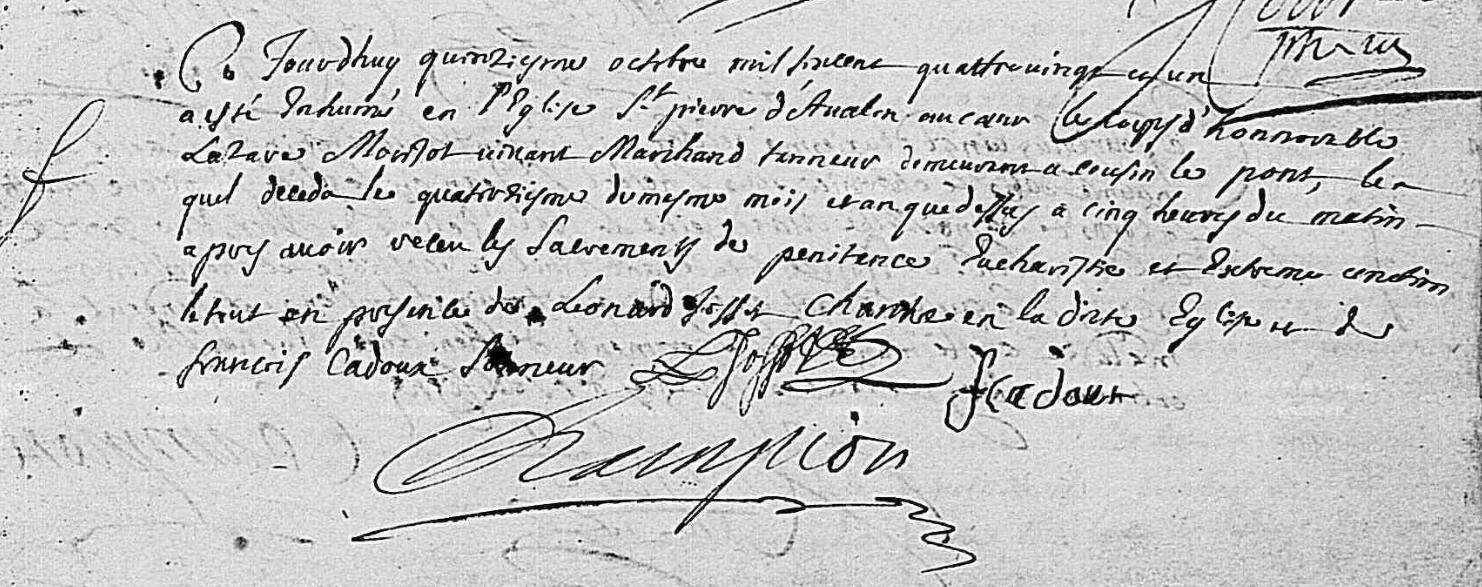 Ce Jourdhuy quinziesme octobre mil sixcent quattrevingt et un
a esté Inhumé en l'Eglise St pierre d'Aualon au cœur le corps d'honnorable
Lazare Morizot viuant Marchand tanneur demeurant a cousin le pont, le
quel deceda le quatorziesme du mesme mois et an que dessus a cinq heures du matin
apres auoir receu les Sacrements de penitence Eucharistie et Extreme onction
le tout en presence de Leonard Jossot Chantre en la dite Eglise et de
francois Cadoux Sonneur L Jossot F cadoux
Champion